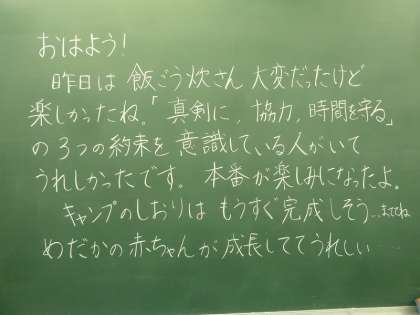 おはよう!
昨日は 飯ごう炊さん 大変だったけど
楽しかったね。「真剣に，協力，時間を守る」
の3つの約束を 意識している人がいて
うれしかったです。 本番が楽しみになったよ。
キャンプのしおりは もうすぐ完成しそう…まっててね
めだかの赤ちゃんが 成長しててうれしい……